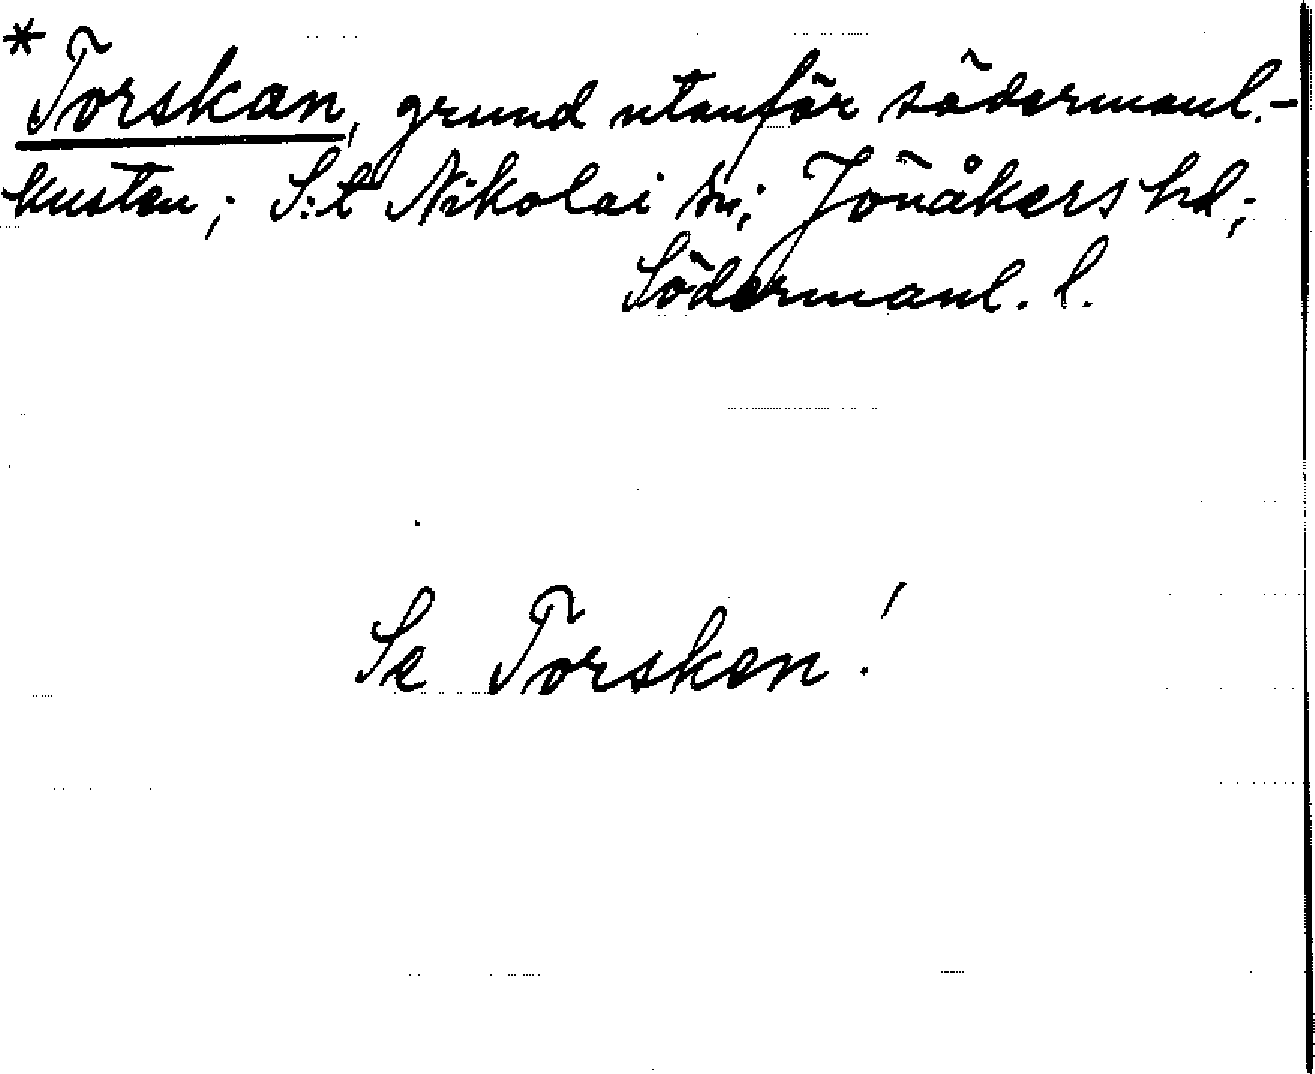 *Torskan, grund utanför södermanl.-
kusten; S:t Nikolai sn; Jönåkers hd;
Södermanl. l.
Se Torsken!